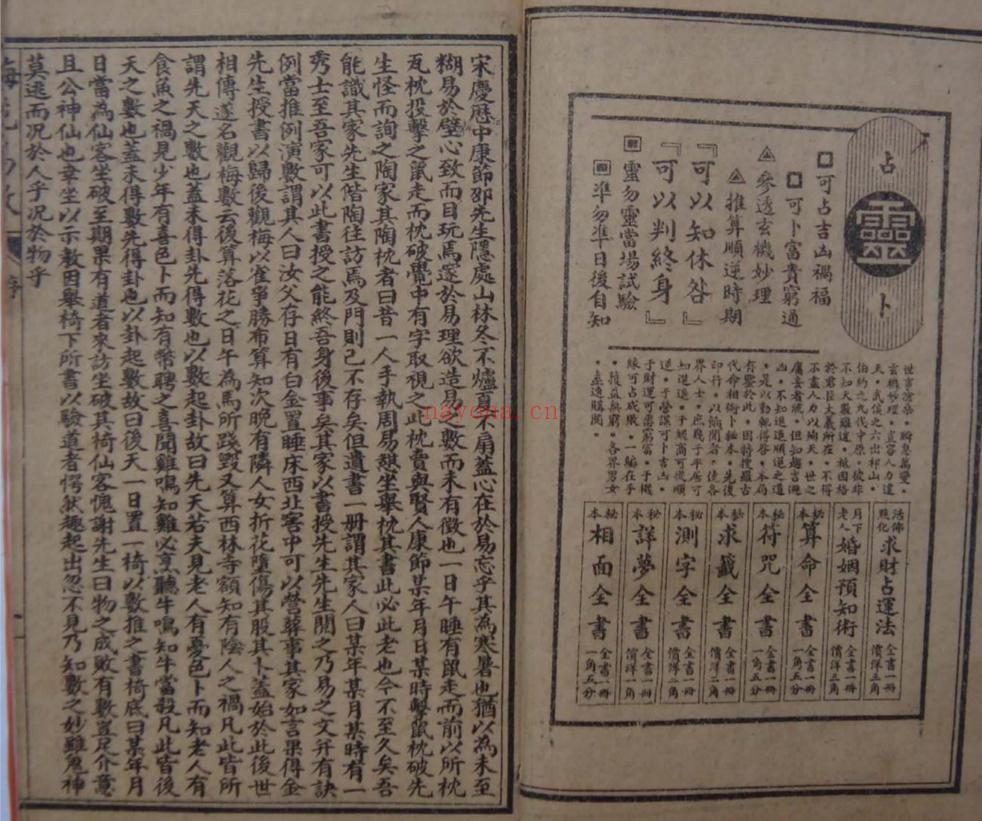 占靈卜
□可占吉凶禍福
□可卜富貴窮通
參透玄機妙理
推算順逆時期
『可以知休咎』
『可以判終身』
靈勿靈當場試驗
準勿準日後自知
世事滄桑。瞬息萬變。
玄機妙理。豈容人力違
天。武侯之六出祁山。
伯約之九伐中原。彼非
不知天厭難違。祗因格
於君臣大義所在。不得
不盡人力以殉天。世之
庸妄者流。但知趨吉避
凶。不知進退順逆之道
。是以動輒得咎。本局
有鑒於此。因特搜羅古
代命相術卜秘本。先後
印行。以餉閱者。使各
界人士。庶幾于平居可
知進退。于經商可從順
逆。于營謀可卜吉凶。
于財運可需窮富。于機
緣可占成敗。一編在手
。獲益無窮。各界男女
。盍速購閱。
活佛現化 求財占運法 全書一冊 價洋三角
月下老人 婚姻預知術 全書一冊 價洋三角
秘本 算命全書 全書一冊 一角五分
秘本 符咒全書 全書一冊 一角五分
秘本 求籤全書 全書一冊 價洋二角
秘本 測字全書 全書一冊 價洋二角
秘本 詳夢全書 全書一冊 價洋三角
秘本 相面全書 全書一冊 一角五分
宋慶歷中康節邵先生隱處山林冬不爐夏不扇蓋心在於易忘乎其為寒暑也猶以為未至
糊易於壁心致而目玩焉邃於易理欲造易之數而未有徵也一日午睡有鼠走而前以所枕
瓦枕投擊之鼠走而枕破覺中有字取視之此枕賣與賢人康節某年月日某時擊鼠枕破先
生怪而詢之陶家其陶枕者曰昔一人手執周易憩坐舉枕其書此必此老也今不至久矣吾
能識其家先生偕陶往訪焉及門則已不存矣但遺書一冊謂其家人曰某年某月某時有一
秀士至吾家可以此書授之能終吾身後事矣其家以書授先生先生閱之乃易之文并有訣
例當推例演數謂其人曰汝父存日有白金置睡床西北窖中可以營葬事其家如言果得金
先生授書以歸後觀梅以雀爭勝布算知次晚有隣人女折花墮傷其股其卜蓋始於此後世
相傳遂名觀梅數云後算落花之日午為馬所踐毀又算西林寺額知有陰人之禍凡此皆所
謂先天之數也蓋未得卦先得數也以數起卦故曰先天若夫見老人有憂色卜而知老人有
食魚之禍見少年有喜色卜而知有幣聘之喜聞雞鳴知雞必烹聽牛鳴知牛當殺凡此皆後
天之數也蓋未得數先得卦也以卦起數故曰後天一日置一椅以數推之書椅底曰某年月
日當為仙客坐破至期果有道者來訪坐破其椅仙客愧謝先生曰物之成敗有數豈足介意
且公神仙也幸坐以示教因舉椅下所書以驗道者愕然趣起出忽不見乃知數之妙雖鬼神
莫逃而況於人乎況於物乎
序
navona.cn